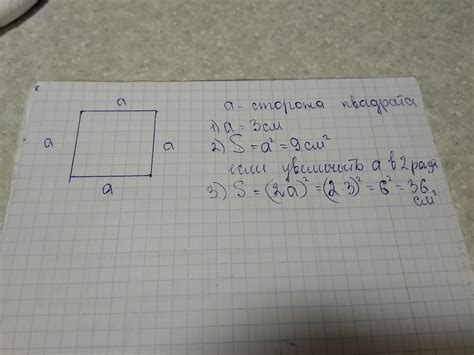 a
a
a
a
a - сторона квадрата
1) a = 3 см
2) S = a² = 9 см²
если увеличить a в 2 раза
3) S = (2a)² = (2·3)² = 6² = 36 см²